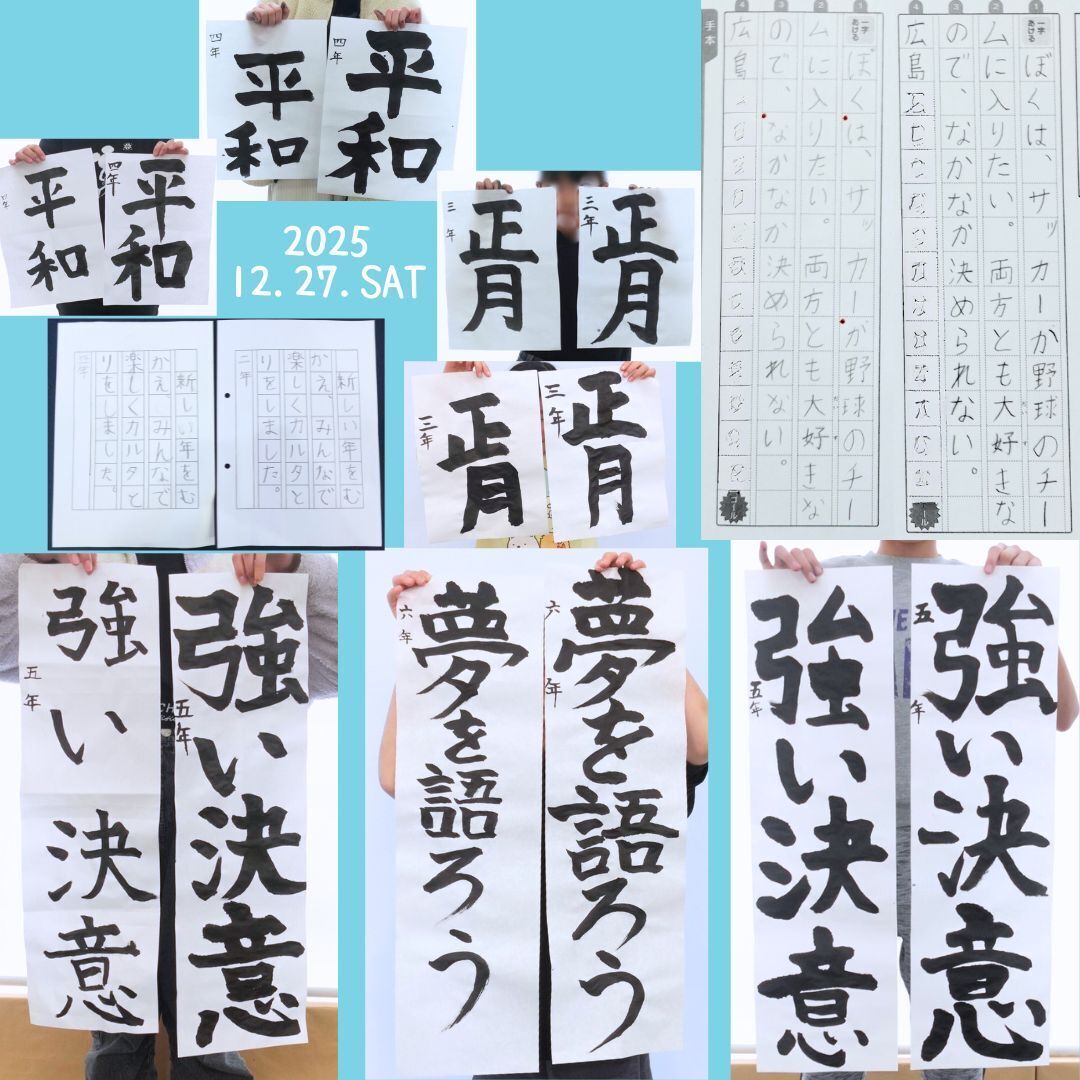 四年
平和
四年
平和
平和
四年
平和
2025
12.27.SAT
三年
正月
三年
正月
三年
正月
三年
正月
手本
① ② ③ ④
一字あける
ぼくは、サッカーか野球のチー
ムに入りたい。両方とも大好きな
ので、なかなか決められない。
広島
① ② ③ ④
一字あける
ぼくは、サッカーが野球のチー
ムに入りたい。両方とも大好きな
ので、なかなか決められない。
広島
ゴール
新しい年をむ
かえ、みんなで
楽しくカルタと
りをしました。
二年
新しい年をむ
かえ、みんなで
楽しくカルタと
りをしました。
強い決意
五年
強い決意
五年
夢を語ろう
六年
夢を語ろう
六年
強い決意
五年
強い決意
五年